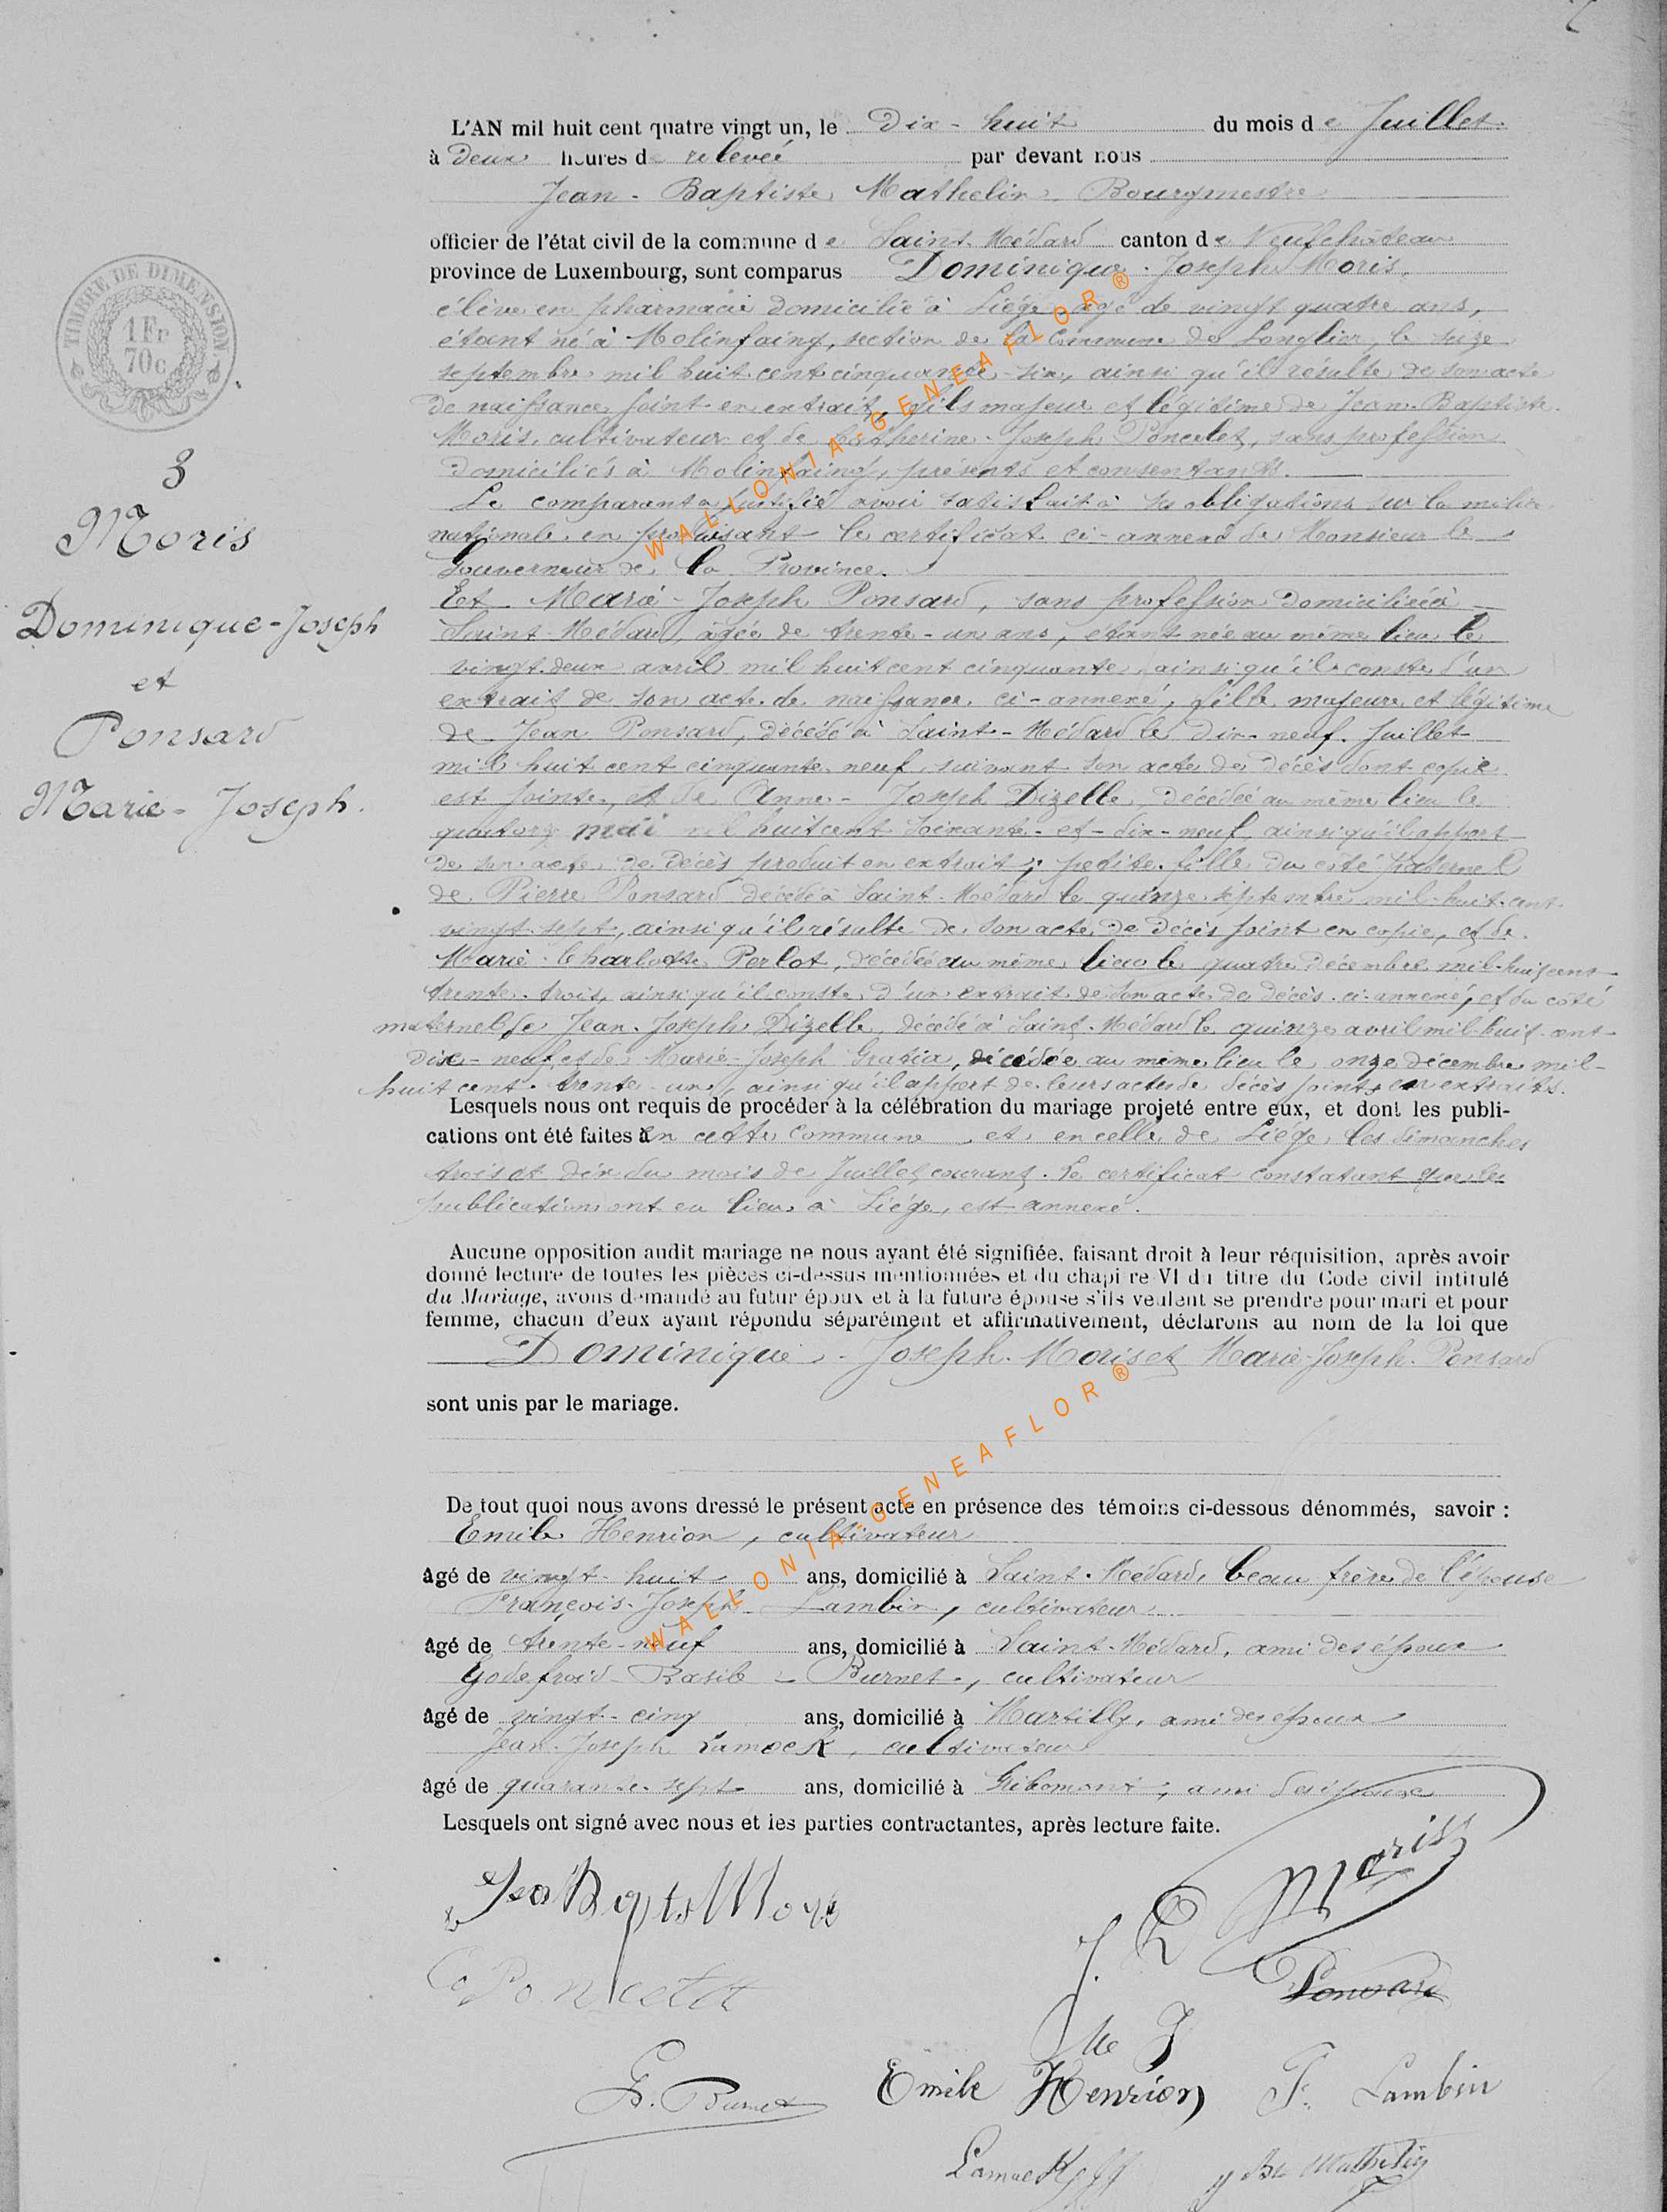 L'AN mil huit cent quatre vingt un, le Dix-huit du mois de Juillet
à Deux heures de relevée par devant nous
Jean-Baptiste Mathelin, Bourgmestre
officier de l'état civil de la commune de Saint-Médard canton de Neufchâteau
province de Luxembourg, sont comparus Dominique-Joseph Moris,
élève en pharmacie domicilié à Liége âgé de vingt quatre ans,
étant né à Molinfaing, section de la Commune de Longlier, le seize
septembre mil huit cent cinquante-six, ainsi qu'il résulte de son acte
de naissance joint en extrait, fils majeur et légitime de Jean-Baptiste
Moris, cultivateur et de Catherine-Joseph Poncelet, sans profession
domiciliés à Molinfaing, présents et consentants.
Le comparant a justifié avoir satisfait à ses obligations sur la milice
nationale en produisant le certificat ci-annexé de Monsieur le
Gouverneur de la Province.
Et Marie-Joseph Ponsard, sans profession domiciliée à
Saint-Médard, âgée de trente-un ans, étant née au même lieu le
vingt-deux avril mil huit cent cinquante, ainsi qu'il conste d'un
extrait de son acte de naissance ci-annexé, fille majeure et légitime
de Jean Ponsard, décédé à Saint-Médard le dix-neuf Juillet
mil huit cent cinquante neuf suivant son acte de décès dont copie
est jointe, et de Anne-Joseph Dizelle, décédée au même lieu le
quatorze mai mil huit cent soixante-et-dix-neuf, ainsi qu'il appert
de son acte de décès produit en extrait; petite-fille du côté paternel
de Pierre Ponsard décédé à Saint-Médard le quinze septembre mil-huit-cent
vingt-sept, ainsi qu'il résulte de son acte de décès joint en copie, et de
Marie-Charlotte Perlot, décédée au même lieu le quatre décembre mil-huit cent
trente-trois, ainsi qu'il conste d'un extrait de son acte de décès ci-annexé, et du côté
maternel de Jean-Joseph Dizelle, décédé à Saint-Médard le quinze avril mil-huit-cent
dix-neuf, et de Marie-Joseph Gratia, décédée au même lieu le onze décembre mil-
huit cent-trente-un, ainsi qu'il appert de leurs actes de décès joints en extraits.
Lesquels nous ont requis de procéder à la célébration du mariage projeté entre eux, et dont les publi-
cations ont été faites en cette commune, et en celle de Liége, les dimanches
trois et dix du mois de Juillet courant. Le certificat constatant que les
publications ont eu lieu à Liége, est annexé.
Aucune opposition audit mariage ne nous ayant été signifiée, faisant droit à leur réquisition, après avoir
donné lecture de toutes les pièces ci-dessus mentionnées et du chapitre VI du titre du Code civil intitulé
du Mariage, avons demandé au futur époux et à la future épouse s'ils veulent se prendre pour mari et pour
femme, chacun d'eux ayant répondu séparément et affirmativement, déclarons au nom de la loi que
Dominique-Joseph Moris et Marie-Joseph Ponsard
sont unis par le mariage.
De tout quoi nous avons dressé le présent acte en présence des témoins ci-dessous dénommés, savoir :
Emile Henrion, cultivateur
âgé de vingt-huit ans, domicilié à Saint-Médard, beau frère de l'épouse
François-Joseph Lambin, cultivateur
âgé de trente-neuf ans, domicilié à Saint-Médard, ami des époux
Godefroid-Basile Burnet, cultivateur
âgé de vingt-cinq ans, domicilié à Martilly, ami des époux
Jean-Joseph Lamock, cultivateur
âgé de quarante-sept ans, domicilié à Gribomont, ami des époux
Lesquels ont signé avec nous et les parties contractantes, après lecture faite.
J. D. Moris
C Poncelet
Ponsard
M J
G. Burnet
Emile Henrion
F. Lambin
TIMBRE DE DIMENSION
1 Fr
70c
3
Moris
Dominique-Joseph
et
Ponsard
Marie-Joseph.
WALLONIA-GENEAFLOR®
WALLONIA-GENEAFLOR®